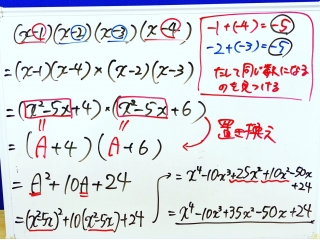 (x-1)(x-2)(x-3)(x-4)
-1+(-4)=-5
-2+(-3)=-5
たして同じ数になる
のを見つける
=(x-1)(x-4)×(x-2)(x-3)
=(x²-5x+4)×(x²-5x+6)
= (A+4)(A+6)
置き換え
=A²+10A+24
=(x²-5x)²+10(x²-5x)+24
=x⁴-10x³+25x²+10x²-50x
+24
=x⁴-10x³+35x²-50x+24